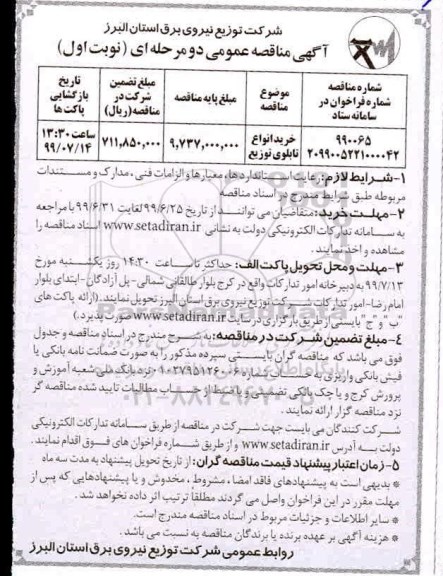 شرکت توزیع نیروی برق استان البرز
آگهی مناقصه عمومی دو مرحله ای (نوبت اول)
شماره مناقصه شماره فراخوان در سامانه ستاد
موضوع مناقصه
مبلغ پایه مناقصه
مبلغ تضمین شرکت در مناقصه(ریال)
تاریخ بازگشایی پاکت ها
۹۹۰۰۶۵
۲۰۹۹۰۰۵۲۲۱۰۰۰۰۴۲
خرید انواع تابلوی توزیع
۹,۷۳۷,۰۰۰,۰۰۰
۷۱۱,۸۵۰,۰۰۰
ساعت ۱۳:۳۰
۹۹/۰۷/۱۴
۱-شرایط لازم: رعایت استانداردها، معیارها و الزامات فنی، مدارک و مستندات
مربوطه طبق شرایط مندرج در اسناد مناقصه
۲-مهلت خرید: متقاضیان می توانند از تاریخ ۹۹/۶/۲۵ لغایت ۹۹/۶/۳۱ با مراجعه
به سامانه تدارکات الکترونیکی دولت به نشانی www.setadiran.ir اسناد مناقصه را
مشاهده و اخذ نمایند.
۳-مهلت و محل تحویل پاکت الف: حداکثر تا ساعت ۱۴:۳۰ روز یکشنبه مورخ
۹۹/۷/۱۳ به دبیرخانه امور تدارکات واقع در کرج بلوار طالقانی شمالی-پل آزادگان-ابتدای بلوار
امام رضا-امور تدارکات شرکت توزیع نیروی برق استان البرز تحویل نمایند.(ارائه پاکت های
"ب" و "ج" بایستی از طریق بارگزاری در سایت www.setadiran.ir صورت پذیرد.)
۴-مبلغ تضمین شرکت در مناقصه: به شرح مندرج در اسناد مناقصه و جدول
فوق می باشد که مناقصه گران بایستی سپرده مذکور را به صورت ضمانت نامه بانکی یا
فیش بانکی واریزی به نزد بانک ملی شعبه آموزش و
پرورش کرج و یا چک بانکی تضمینی و یا خط از حساب مطالبات تایید شده مناقصه گر
نزد مناقصه گزار ارائه نمایند.
شرکت کنندگان می بایست جهت شرکت در مناقصه از طریق سامانه تدارکات الکترونیکی
دولت به آدرس www.setadiran.ir و از طریق شماره فراخوان های فوق اقدام نمایند.
۵-زمان اعتبار پیشنهاد قیمت مناقصه گران: از تاریخ تحویل پیشنهاد به مدت سه ماه
* بدیهی است به پیشنهادهای فاقد امضا، مشروط، مخدوش و یا پیشنهادهایی که پس از
مهلت مقرر در این فراخوان واصل می گردند مطلقا ترتیب اثر داده نخواهد شد.
* سایر اطلاعات و جزئیات مربوط در اسناد مناقصه مندرج است.
* هزینه آگهی بر عهده برنده یا برندگان مناقصه به نسبت می باشد.
روابط عمومی شرکت توزیع نیروی برق استان البرز